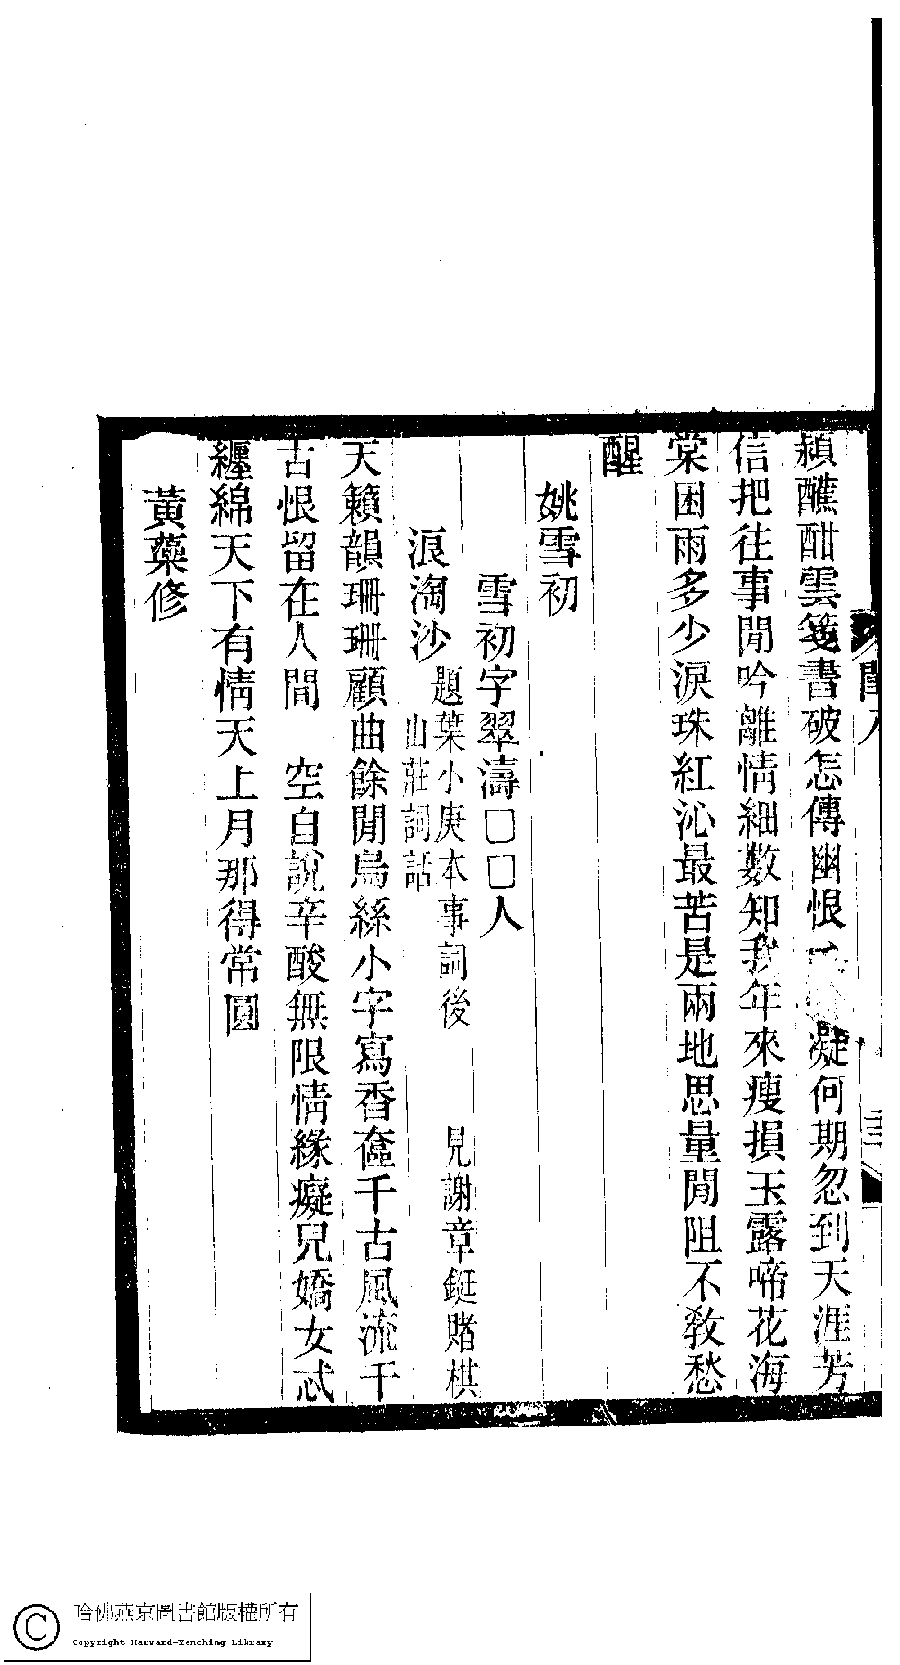 頳醮酣雲箋書破怎傳幽恨一 凝何期忽到天涯芳
信把往事閒吟離情細數知我年來瘦損玉露啼花海
棠困雨多少淚珠紅沁最苦是兩地思量閒阻不教愁
醒
姚雪初
雪初字翠濤□□人
浪淘沙 題葉小庚本事詞後 見謝章鋌賭棋
山莊詞話
天籟韻珊珊顧曲餘閒烏絲小字寫香奩千古風流千
古恨留在人間 空自說辛酸無限情緣癡兒嬌女忒
纏綿天下有情天上月那得常圓
黃蘗修
哈佛燕京圖書館版權所有
Copyright Harvard-Yenching Library